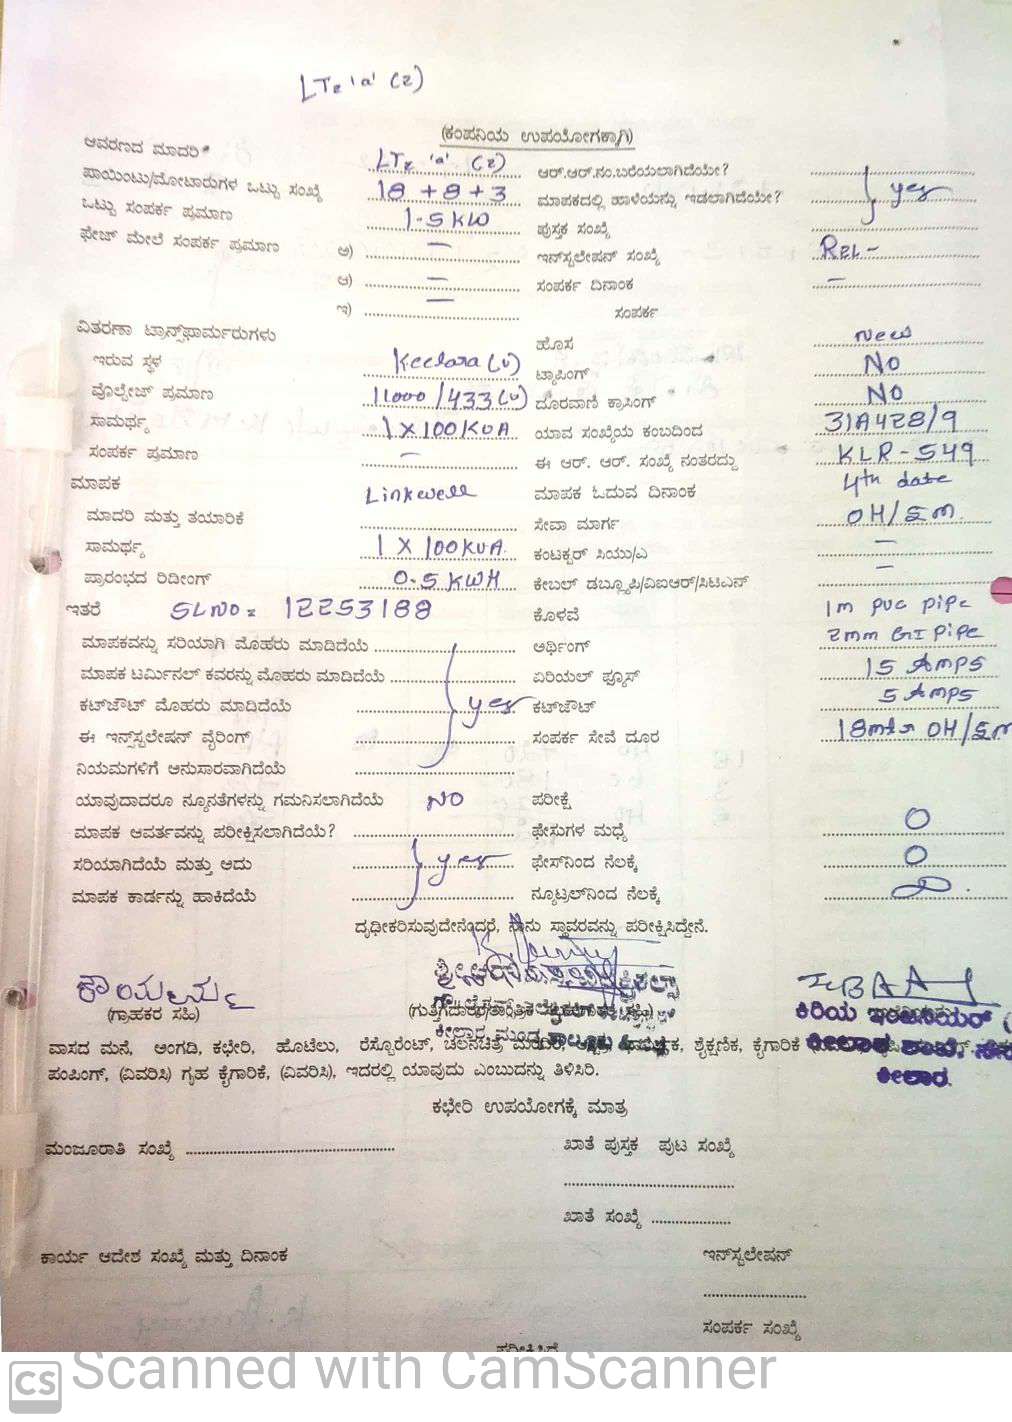 LT2 'a' (2)
(ಕಂಪನಿಯ ಉಪಯೋಗಕ್ಕಾಗಿ)
ಆವರಣದ ಮಾದರಿ LT2 'a' (2) ಆರ್.ಆರ್.ನಂ.ಬರೆಯಲಾಗಿದೆಯೇ?
ಪಾಯಿಂಟು/ಮೋಟಾರುಗಳ ಒಟ್ಟು ಸಂಖ್ಯೆ 18 + 8 + 3 ಮಾಪಕದಲ್ಲಿ ಹಾಳೆಯನ್ನು ಇಡಲಾಗಿದೆಯೇ? yes
ಒಟ್ಟು ಸಂಪರ್ಕ ಪ್ರಮಾಣ 1-5 KW ಪುಸ್ತಕ ಸಂಖ್ಯೆ
ಫೇಜ್ ಮೇಲೆ ಸಂಪರ್ಕ ಪ್ರಮಾಣ ಅ) — ಇನ್‌ಸ್ಟಲೇಷನ್ ಸಂಖ್ಯೆ
ಆ) — ಸಂಪರ್ಕ ದಿನಾಂಕ —
ಇ) — ಸಂಪರ್ಕ
ವಿತರಣಾ ಟ್ರಾನ್ಸ್‌ಫಾರ್ಮರುಗಳು ಹೊಸ New
ಇರುವ ಸ್ಥಳ Keelara (V) ಟ್ಯಾಪಿಂಗ್ NO
ವೊಲ್ಟೇಜ್ ಪ್ರಮಾಣ 11000/433 (V) ದೂರವಾಣಿ ಕ್ರಾಸಿಂಗ್ NO
ಸಾಮರ್ಥ್ಯ 1 X 100 KVA ಯಾವ ಸಂಖ್ಯೆಯ ಕಂಬದಿಂದ 31A428/9
ಸಂಪರ್ಕ ಪ್ರಮಾಣ — ಈ ಆರ್. ಆರ್. ಸಂಖ್ಯೆ ನಂತರದ್ದು KLR-549
ಮಾಪಕ Linkwell ಮಾಪಕ ಓದುವ ದಿನಾಂಕ 4th date
ಮಾದರಿ ಮತ್ತು ತಯಾರಿಕೆ ಸೇವಾ ಮಾರ್ಗ OH/Sm.
ಸಾಮರ್ಥ್ಯ 1 X 100 KVA. ಕಂಟಕ್ಟರ್ ಸಿಯು/ಎ —
ಪ್ರಾರಂಭದ ರಿಡೀಂಗ್ 0.5 KWH ಕೇಬಲ್ ಡಬ್ಲ್ಯೂಪಿ/ವಿಐಆರ್/ಸಿಟಿಎನ್ —
ಇತರೆ SL NO = 12253188 ಕೊಳವೆ 1m PVC pipe
ಮಾಪಕವನ್ನು ಸರಿಯಾಗಿ ಮೊಹರು ಮಾಡಿದೆಯೆ ಅರ್ಥಿಂಗ್ 2mm GI pipe
ಮಾಪಕ ಟರ್ಮಿನಲ್ ಕವರನ್ನು ಮೊಹರು ಮಾಡಿದೆಯೆ ಏರಿಯಲ್ ಫ್ಯೂಸ್ 15 Amps
ಕಟ್‌ಔಟ್ ಮೊಹರು ಮಾಡಿದೆಯೆ yes ಕಟ್‌ಔಟ್ 5 Amps
ಈ ಇನ್ಸ್‌ಸ್ಟಲೇಷನ್ ವೈರಿಂಗ್ ಸಂಪರ್ಕ ಸೇವೆ ದೂರ 18mts OH/Sm
ನಿಯಮಗಳಿಗೆ ಅನುಸಾರವಾಗಿದೆಯೆ
ಯಾವುದಾದರೂ ನ್ಯೂನತೆಗಳನ್ನು ಗಮನಿಸಲಾಗಿದೆಯೆ NO ಪರೀಕ್ಷೆ
ಮಾಪಕ ಆವರ್ತವನ್ನು ಪರೀಕ್ಷಿಸಲಾಗಿದೆಯೆ? ಫೇಸುಗಳ ಮಧ್ಯೆ 0
ಸರಿಯಾಗಿದೆಯೆ ಮತ್ತು ಅದು yes ಫೇಸ್‌ನಿಂದ ನೆಲಕ್ಕೆ 0
ಮಾಪಕ ಕಾರ್ಡನ್ನು ಹಾಕಿದೆಯೆ ನ್ಯೂಟ್ರಲ್‌ನಿಂದ ನೆಲಕ್ಕೆ
ದೃಢೀಕರಿಸುವುದೇನೆಂದರೆ, ನಾನು ಸ್ಥಾವರವನ್ನು ಪರೀಕ್ಷಿಸಿದ್ದೇನೆ.
(ಗ್ರಾಹಕರ ಸಹಿ) (ಗುತ್ತಿಗೆದಾರರ/ತಾಂತ್ರಿಕ ಕಿರಿಯ ಇಂಜಿನಿಯರ್ (
ಕೀಲಾರ
ವಾಸದ ಮನೆ, ಅಂಗಡಿ, ಕಛೇರಿ, ಹೊಟೆಲು, ರೆಸ್ಟೋರೆಂಟ್, ಚಲನಚಿತ್ರ ಶೈಕ್ಷಣಿಕ, ಕೈಗಾರಿಕೆ
ಪಂಪಿಂಗ್, (ವಿವರಿಸಿ) ಗೃಹ ಕೈಗಾರಿಕೆ, (ವಿವರಿಸಿ), ಇದರಲ್ಲಿ ಯಾವುದು ಎಂಬುದನ್ನು ತಿಳಿಸಿರಿ. ಕೀಲಾರ
ಕಛೇರಿ ಉಪಯೋಗಕ್ಕೆ ಮಾತ್ರ
ಮಂಜೂರಾತಿ ಸಂಖ್ಯೆ ಖಾತೆ ಪುಸ್ತಕ ಪುಟ ಸಂಖ್ಯೆ
ಖಾತೆ ಸಂಖ್ಯೆ
ಕಾರ್ಯ ಆದೇಶ ಸಂಖ್ಯೆ ಮತ್ತು ದಿನಾಂಕ ಇನ್‌ಸ್ಟಲೇಷನ್
ಸಂಪರ್ಕ ಸಂಖ್ಯೆ
CS Scanned with CamScanner